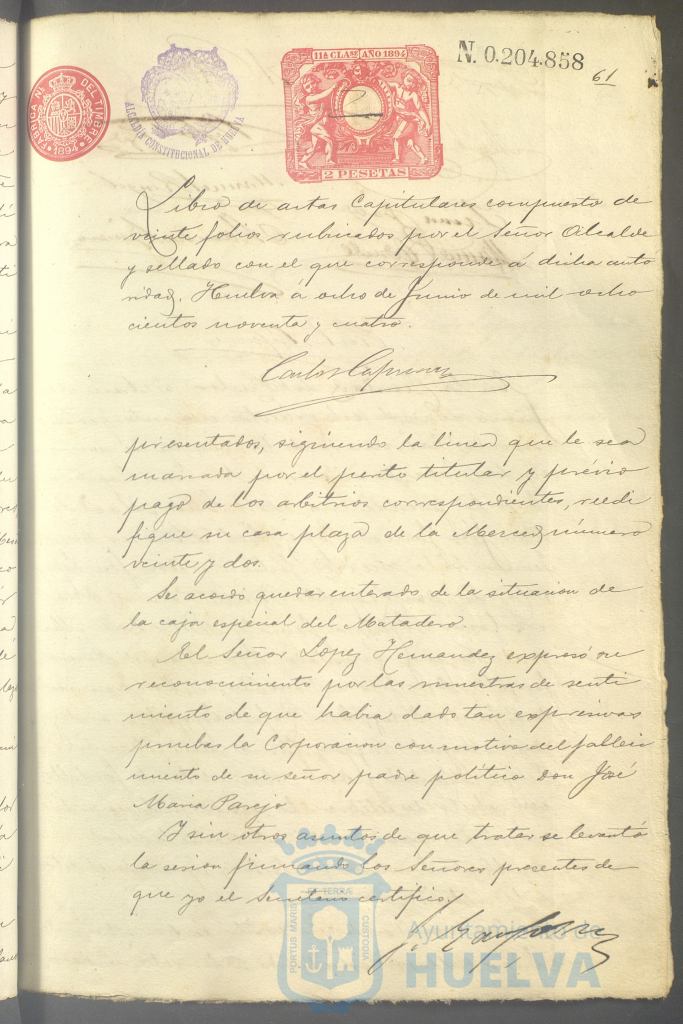 N. 0.204.858
61
11ª CLASE AÑO 1894
2 PESETAS
FABRICA NL. DEL TIMBRE
1894
ALCALDIA CONSTITUCIONAL DE HUELVA
Libro de actas Capitulares compuesto de
veinte folios rubricados por el Señor Alcalde
y sellado con el que corresponde á dicha auto
ridad. Huelva á ocho de Junio de mil ocho
cientos noventa y cuatro.
Carlos
presentados, siguiendo la linea que le sea
marcada por el perito titular y prévio
pago de los arbitrios correspondientes, reedi
fique su casa plaza de la Merced número
veinte y dos.
Se acordó quedar enterado de la situacion de
la caja especial del Matadero.
El Señor Lopez Hernandez expresó su
reconocimiento por las muestras de senti
miento de que habia dado tan expresivas
pruebas la Corporacion con motivo del falleci
miento de su señor padre político Don José
Maria Parejo
Y sin otros asuntos de que tratar se levantó
la sesion firmando los Señores presentes de
que yo el Secretario certifico
PORTUS MARIS
ET TERRÆ
CUSTODIA
Ayuntamiento de
HUELVA